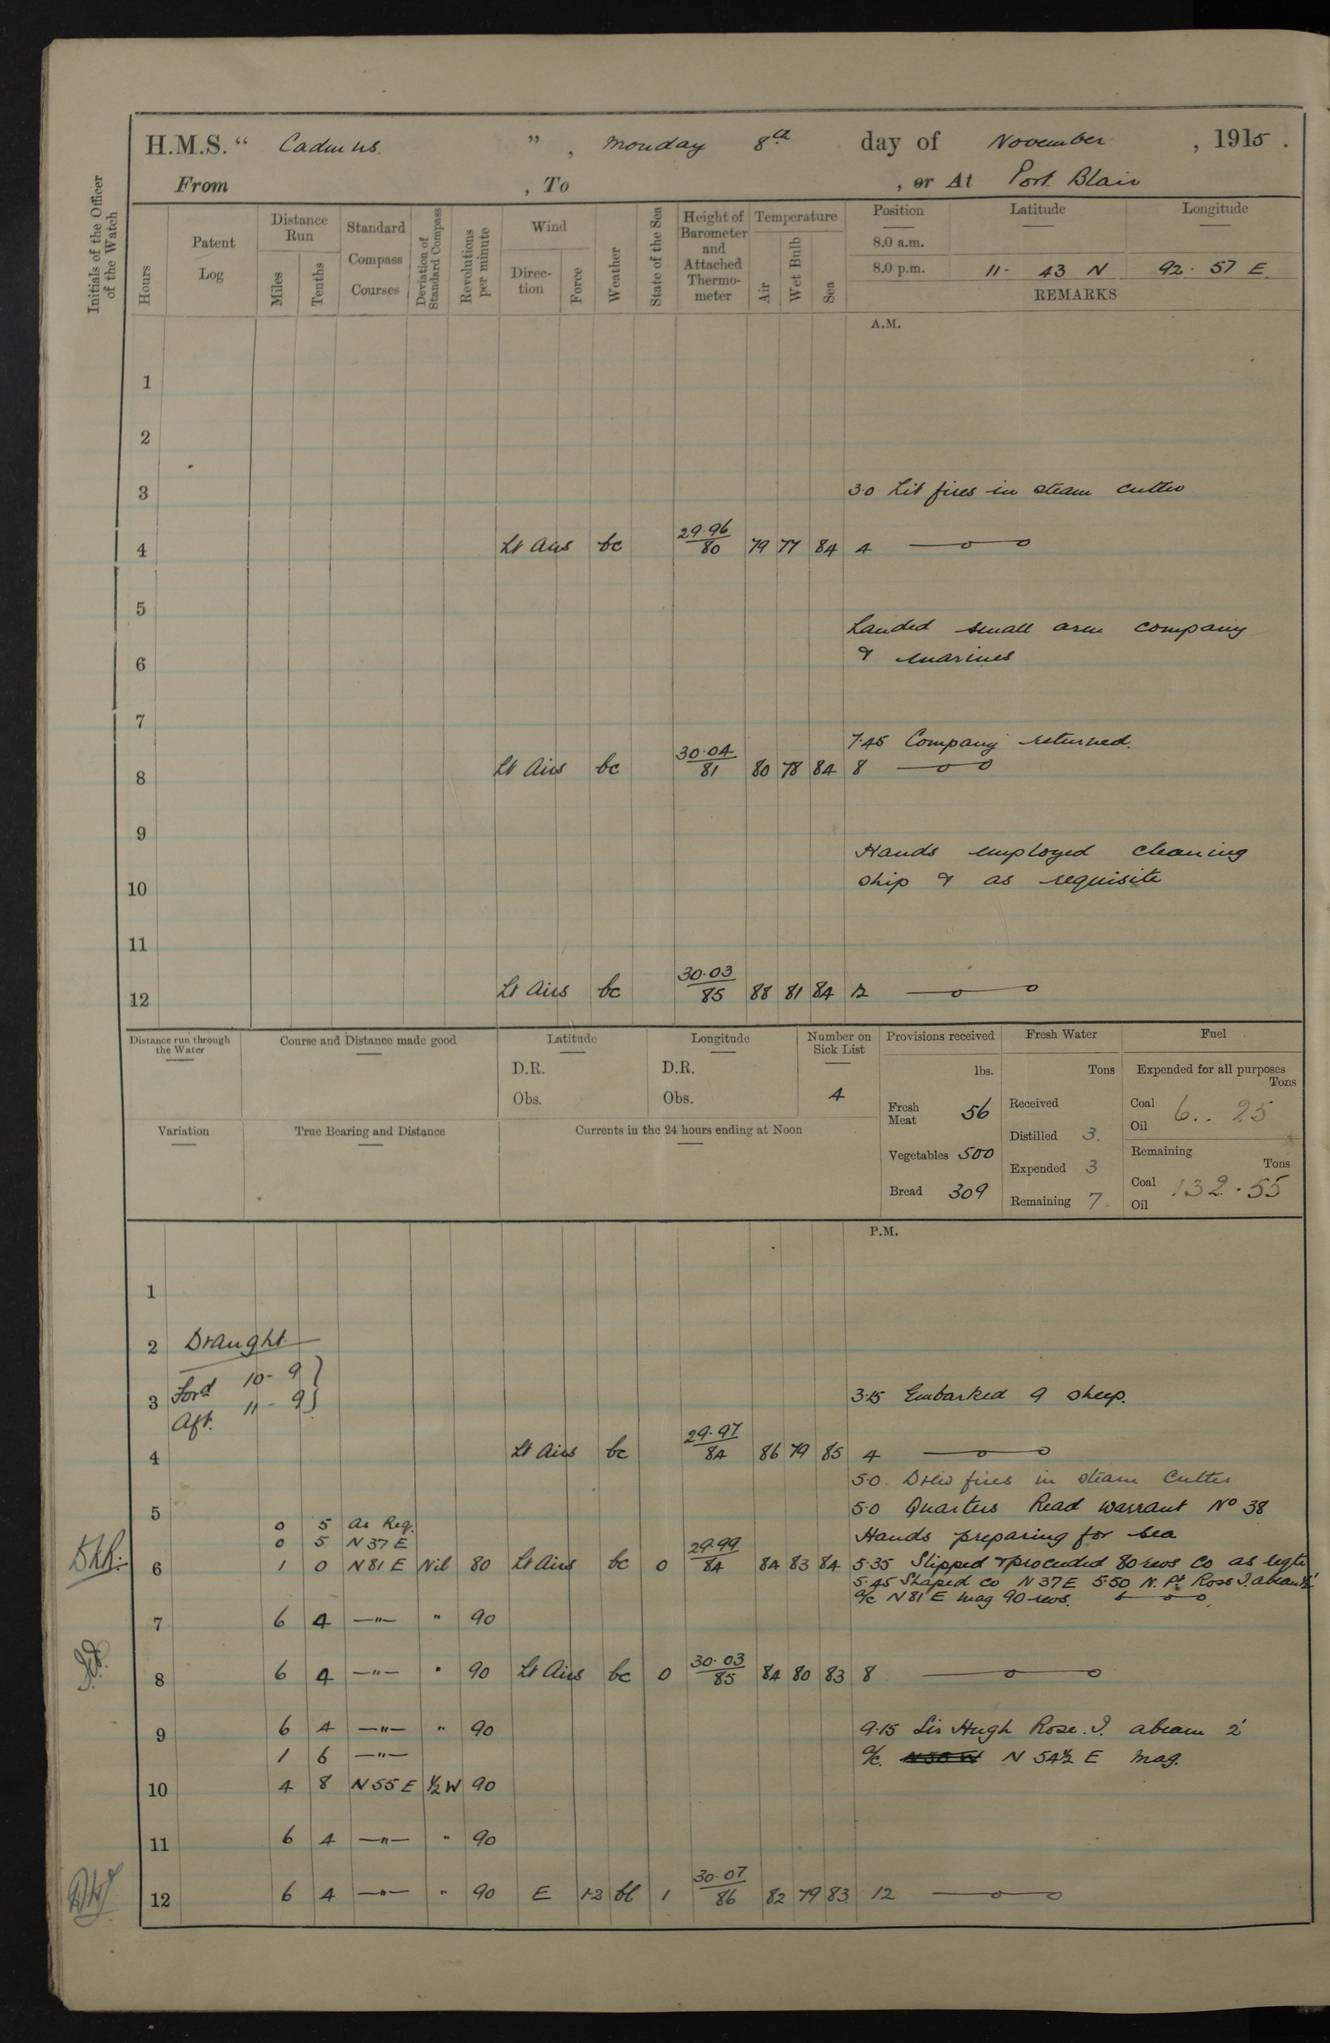 H.M.S. " Cadmus ", Monday 8th day of November, 1915.
From , To , or At Port Blair
Initials of the Officer of the Watch
Hours
Patent Log
Distance Run
Miles
Tenths
Standard Compass Courses
Deviation of Standard Compass
Revolutions per minute
Wind
Direction
Force
Weather
State of the Sea
Height of Barometer and Attached Thermometer
Temperature
Air
Wet Bulb
Sea
Position Latitude Longitude
8.0 a.m.
8.0 p.m. 11- 43 N 92. 57 E
REMARKS
A.M.
1
2
3 3.0 Lit fires in steam cutter
4 Lt Airs bc 29.96/80 79 77 84 4
5
Landed small arm company
6 & marines
7
7.45 Company returned.
8 Lt Airs bc 30.04/81 80 78 84 8
9
Hands employed cleaning
10 ship & as requisite
11
12 Lt Airs bc 30.03/85 88 81 84 12
Distance run through the Water
Course and Distance made good
Latitude
D.R.
Obs.
Longitude
D.R.
Obs.
Number on Sick List
4
Provisions received
lbs.
Fresh Meat 56
Vegetables 500
Bread 309
Fresh Water
Tons
Received
Distilled 3.
Expended 3
Remaining 7.
Fuel
Expended for all purposes
Tons
Coal 6.. 25
Oil
Remaining
Tons
Coal 132.55
Oil
Variation
True Bearing and Distance
Currents in the 24 hours ending at Noon
P.M.
1
2 Draught
Ford 10- 9
3 3.15 Embarked 9 sheep.
Aft. 11- 9
4 Lt Airs bc 29.97/84 86 79 85 4
5.0. Drew fires in steam Cutter
5 5.0 Quarters Read warrant No 38
0 5 As Req.
0 5 N 37 E Hands preparing for sea
6 1 0 N 81 E Nil 80 Lt Airs bc 0 29.99/84 84 83 84 5.35 Slipped & proceeded 80 revs Co as reqte
5.45 Shaped Co N 37 E 5.50 N. Pt Ross I. abeam 1/2'
a/c N 81 E mag 90 revs.
7 6 4 —"— " 90
8 6 4 —"— " 90 Lt Airs bc 0 30.03/85 84 80 83 8
9 6 4 —"— " 90 9.15 Sir Hugh Rose. I. abeam 2'
1 6 —"— a/c. N 54½ E mag.
10 4 8 N 55 E ½ W 90
11 6 4 —"— " 90
12 6 4 —"— " 90 E 1-2 bc 1 30.07/86 82 79 83. 12